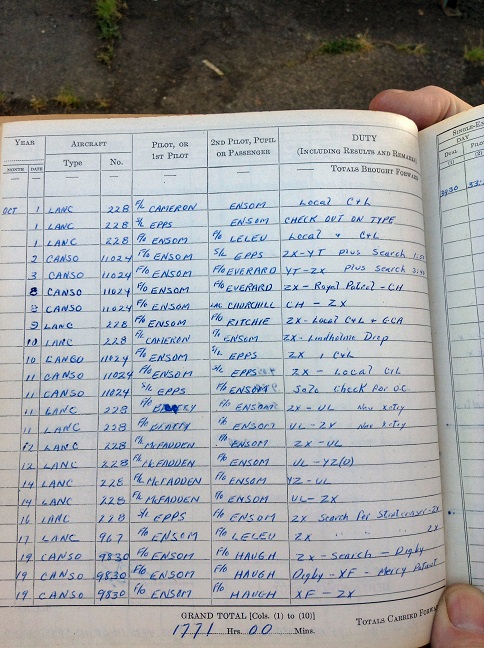 YEAR AIRCRAFT PILOT, OR 1ST PILOT 2ND PILOT, PUPIL OR PASSENGER DUTY (INCLUDING RESULTS AND REMARKS) SINGLE-EN
MONTH DATE Type No. TOTALS BROUGHT FORWA DAY DUAL PILO
(1) (2)
OCT 1 LANC 228 F/L CAMERON ENSOM Local C+L
1 LANC 228 S/L EPPS ENSOM CHECK OUT ON TYPE
1 LANC 228 F/O ENSOM F/O LELEU Local & C+L
2 CANSO 11024 F/O ENSOM S/L EPPS ZX-YT plus Search
3 CANSO 11024 F/O ENSOM F/O EVERARD YT-ZX plus Search
8 CANSO 11024 F/O ENSOM F/O EVERARD ZX- Royal Patrol - CH
8 CANSO 11024 F/O ENSOM LAC CHURCHILL CH - ZX
9 LANC 228 F/O ENSOM F/O RITCHIE ZX- Local C+L + GCA
10 LANC 228 F/L CAMERON F/O ENSOM ZX - Lindholme Drop
10 CANSO 11024 F/O ENSOM S/L EPPS ZX C+L
11 CANSO 11024 F/O ENSOM S/L EPPS ZX - Local C+L
11 CANSO 11024 S/L EPPS F/O ENSOM Solo Check for OC
11 LANC 228 F/O ENSOM ZX - UL
11 LANC 228 F/O BEATTY F/O ENSOM UL - ZX
12 LANC 228 F/O McFADDEN F/O ENSOM ZX - UL
12 LANC 228 F/O McFADDEN F/O ENSOM UL - YZ(D)
14 LANC 228 F/O McFADDEN F/O ENSOM YZ - UL
14 LANC 228 F/O McFADDEN F/O ENSOM UL- ZX
16 LANC 228 S/L EPPS F/O ENSOM ZX Search for
17 LANC 967 F/O ENSOM F/O LELEU ZX " " " ZX
19 CANSO 9830 F/O ENSOM F/O HAUGH ZX - Search - Digby
19 CANSO 9830 F/O ENSOM F/O HAUGH Digby - XF - Mercy Patrol
19 CANSO 9830 F/O ENSOM F/O HAUGH XF - ZX
GRAND TOTAL [Cols. (1) to (10)]
1771 Hrs. 00 Mins.
TOTALS CARRIED FORWA